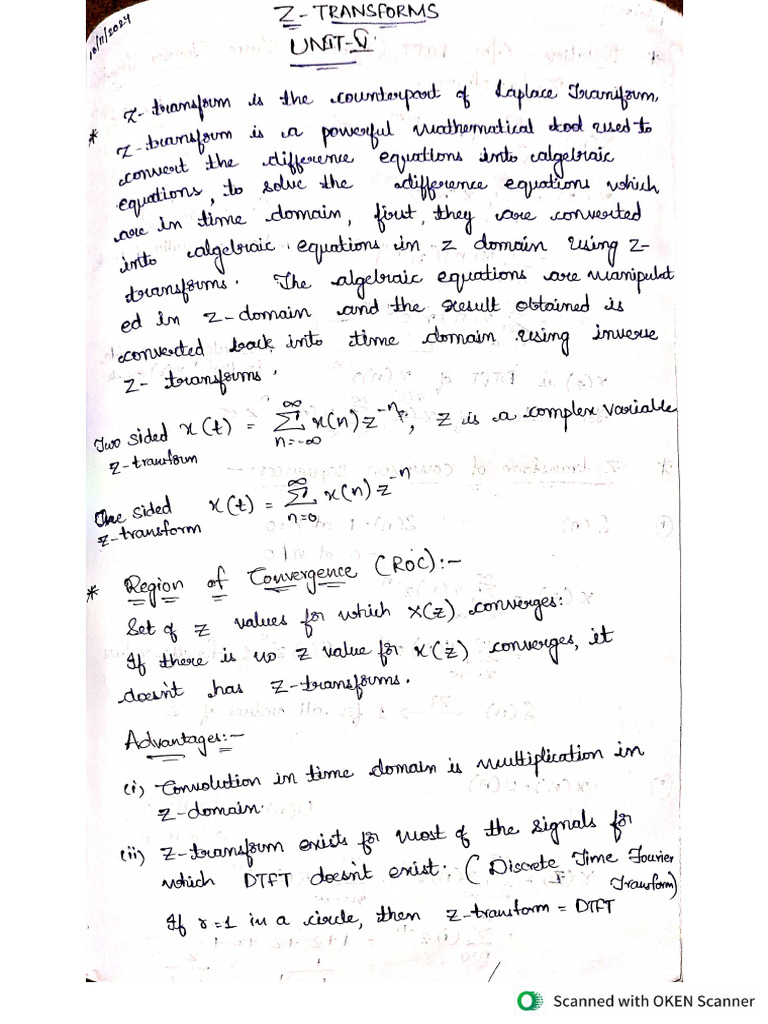 10/11/2024
Z-TRANSFORMS
UNIT-V
Z-transform is the counterpart of Laplace Transform.
* Z-transform is a powerful mathematical tool used to
convert the difference equations into algebraic
equations, to solve the difference equations which
are in time domain, first, they are converted
into algebraic equations in z domain using Z-
transforms. The algebraic equations are manipulat
ed in z-domain and the result obtained is
converted back into time domain using inverse
Z-transforms.
Two sided x(t) = ∞ Σ n=-∞ x(n) z^-n, z is a complex variable
Z-transform
One sided x(t) = ∞ Σ n=0 x(n) z^-n
Z-transform
* Region of Convergence (ROC):-
Set of z values for which X(z) converges:
If there is no z value for X(z) converges, it
doesn't has Z-transforms.
Advantages:-
(i) Convolution in time domain is multiplication in
Z-domain.
(ii) Z-transform exists for most of the signals for
which DTFT doesn't exist. (Discrete Time Fourier
Transform)
If r=1 in a circle, then Z-transform = DTFT
Scanned with OKEN Scanner